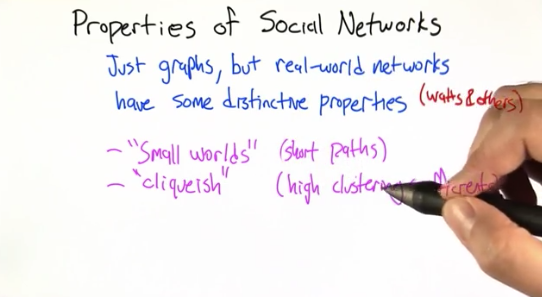 Properties of Social Networks
Just graphs, but real-world networks
have some distinctive properties (Watts & others)
- "Small worlds" (short paths)
- "cliqueish" (high clustering